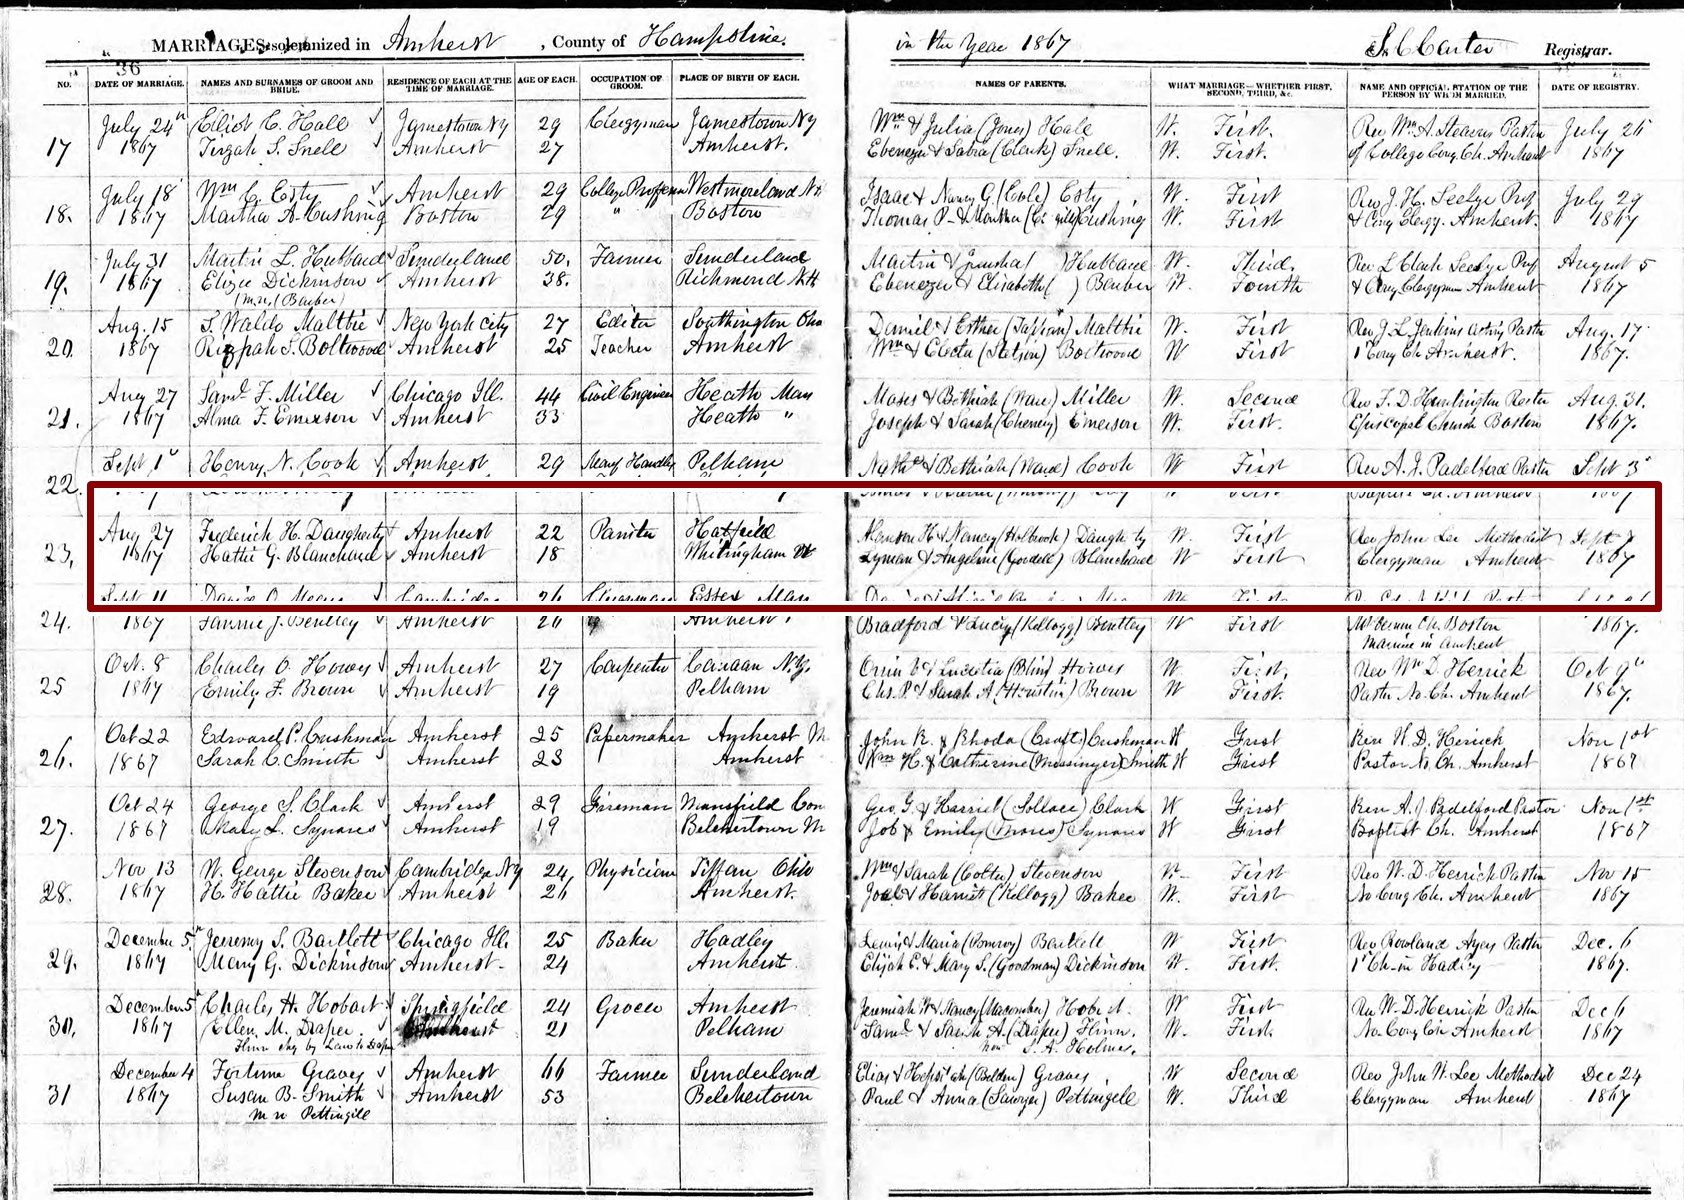 MARRIAGES solemnized in Amherst, County of Hampshire. in the Year 1867 S. C. Carter Registrar.
36
NO. DATE OF MARRIAGE. NAMES AND SURNAMES OF GROOM AND BRIDE. RESIDENCE OF EACH AT THE TIME OF MARRIAGE. AGE OF EACH. OCCUPATION OF GROOM. PLACE OF BIRTH OF EACH. NAMES OF PARENTS. WHAT MARRIAGE—WHETHER FIRST, SECOND, THIRD, &c. NAME AND OFFICIAL STATION OF THE PERSON BY WHOM MARRIED. DATE OF REGISTRY.
July 24th Eliot C. Hall Jamestown NY 29 Clergyman Jamestown NY Wm & Julia (Jones) Hall W. First. Rev Wm. A. Stearns Pastor July 26
17 1867 Tirzah S. Snell Amherst 27 Amherst. Ebenezer & Sabra (Clark) Snell. W. First. of College Cong. Ch. Amherst 1867
July 18 Wm C. Esty Amherst 29 College Professor Westmoreland N.H. Isaac & Nancy G. (Cole) Esty W. First Rev J. H. Seelye Prof July 29
18. 1867 Martha A. Cushing Boston 29 " Boston Thomas P. & Martha Cushing W. First & Cong Clergy. Amherst. 1867
July 31 Martin L. Hubbard Sunderland 50. Farmer Sunderland Martin & Jerusha ( ) Hubbard W. Third. Rev L Clark Seelye Prof August 5
19. 1867 Eliza Dickinson Amherst 38. Richmond NH Ebenezer & Elizabeth ( ) Barber W. Fourth & Cong Clergyman Amherst 1867
(m.n. (Barber)
Aug. 15 S. Waldo Malttie New York City 27 Editor Southington Ohio Daniel & Esther Malttie W. First Rev J. L. Jenkins acting Pastor Aug. 17
20. 1867 Rizpah S. Boltwood Amherst 25 Teacher Amherst Wm & Electa (Stetson) Boltwood W First 1 Cong Ch Amherst. 1867.
Aug 27 Saml. F. Miller Chicago Ill. 44 Civil Engineer Heath Mass Moses & Bethiah (Ware) Miller W. Second Rev F. D. Huntington Rector Aug. 31.
21. 1867 Alma F. Emerson Amherst 33 Heath " Joseph & Sarah (Cheney) Emerson W. First. Episcopal Church Boston 1867.
Sept 1st Henry N. Cook Amherst 29 Pelham Nathl & Bethiah (Ward) Cook W First Rev A. J. Padelford Pastor Sept 3
22.
Aug 27 Frederick H. Daugherty Amherst 22 Painter Hatfield Alanson H & Nancy (Holbrook) Daugherty W. First Rev John Lee Methodist Sept 7
23. 1867 Hattie G. Blanchard Amherst 18 Whitingham Vt Lyman & Angeline (Goodell) Blanchard W First Clergyman Amherst 1867
Sept 11 Clergyman Essex Mass
24. 1867 Fannie J. Bentley 26 Amherst. Bradford & Lucy (Kellogg) Bentley W First Mt Vernon Ch. Boston 1867.
Married in Amherst
Oct. 8 Charles O. Howes Amherst 27 Carpenter Canaan N.Y. Orrin & Lucretia (Blin) Howes W. First. Rev Wm D. Herrick Oct 9th
25 1867 Emily F. Brown Amherst 19 Pelham Chs. P. & Sarah A (Houston) Brown W First. Pastor No. Ch. Amherst 1867.
Oct 22 Edward P. Cushman Amherst 25 Papermaker Amherst M John R. & Rhoda (Craft) Cushman W First Rev W. D. Herrick Nov 1st
26. 1867 Sarah C. Smith Amherst 23 Amherst Wm H. & Catherine (Messinger) Smith W First Pastor No. Ch. Amherst 1867
Oct 24 George S. Clark Amherst 29 Fireman Mansfield Con Geo. G. & Harriet (Sollace) Clark W First Rev A. J. Padelford Pastor Nov 1st
27. 1867 Mary L. Synons Amherst 19 Belchertown M Job & Emily (Morse) Synons W First Baptist Ch. Amherst 1867
Nov 13 W. George Stevenson Cambridge NY 24 Physician Tiffan Ohio Wm & Sarah (Colter) Stevenson W First Rev W. D. Herrick Pastor Nov 15
28. 1867 H. Hattie Baker Amherst 26 Amherst. Joel & Harriet (Kellogg) Baker W. First No Cong Ch. Amherst 1867
December 5th Jeremy S. Bartlett Chicago Ill. 25 Baker Hadley Lewis & Maria (Pomroy) Bartlett W First. Rev Rowland Ayers Pastor Dec. 6
29. 1867 Mary G. Dickinson Amherst 24 Amherst Elijah E. & Mary S. (Goodman) Dickinson W. First. 1st Ch in Hadley 1867.
December 5th Charles H. Hobart Springfield 24 Grocer Amherst Jeremiah W & Nancy (Macomber) Hobart. W First Rev W. D. Herrick Pastor Dec 6
30. 1867 Ellen M. Draper. Amherst 21 Pelham Saml & Sarah A. (Draper) Flinn. W. First. No Cong Ch Amherst 1867
Flinn chg by Law to Draper now S. A. Holmes.
December 4 Fortune Graves Amherst 66 Farmer Sunderland Elias & Hepsibah (Belden) Graves W Second Rev John W. Lee Methodist Dec 24
31 1867 Susan B. Smith Amherst 53 Belchertown Paul & Anna (Sawyer) Pettingell W. Third Clergyman Amherst 1867
m n Pettingill